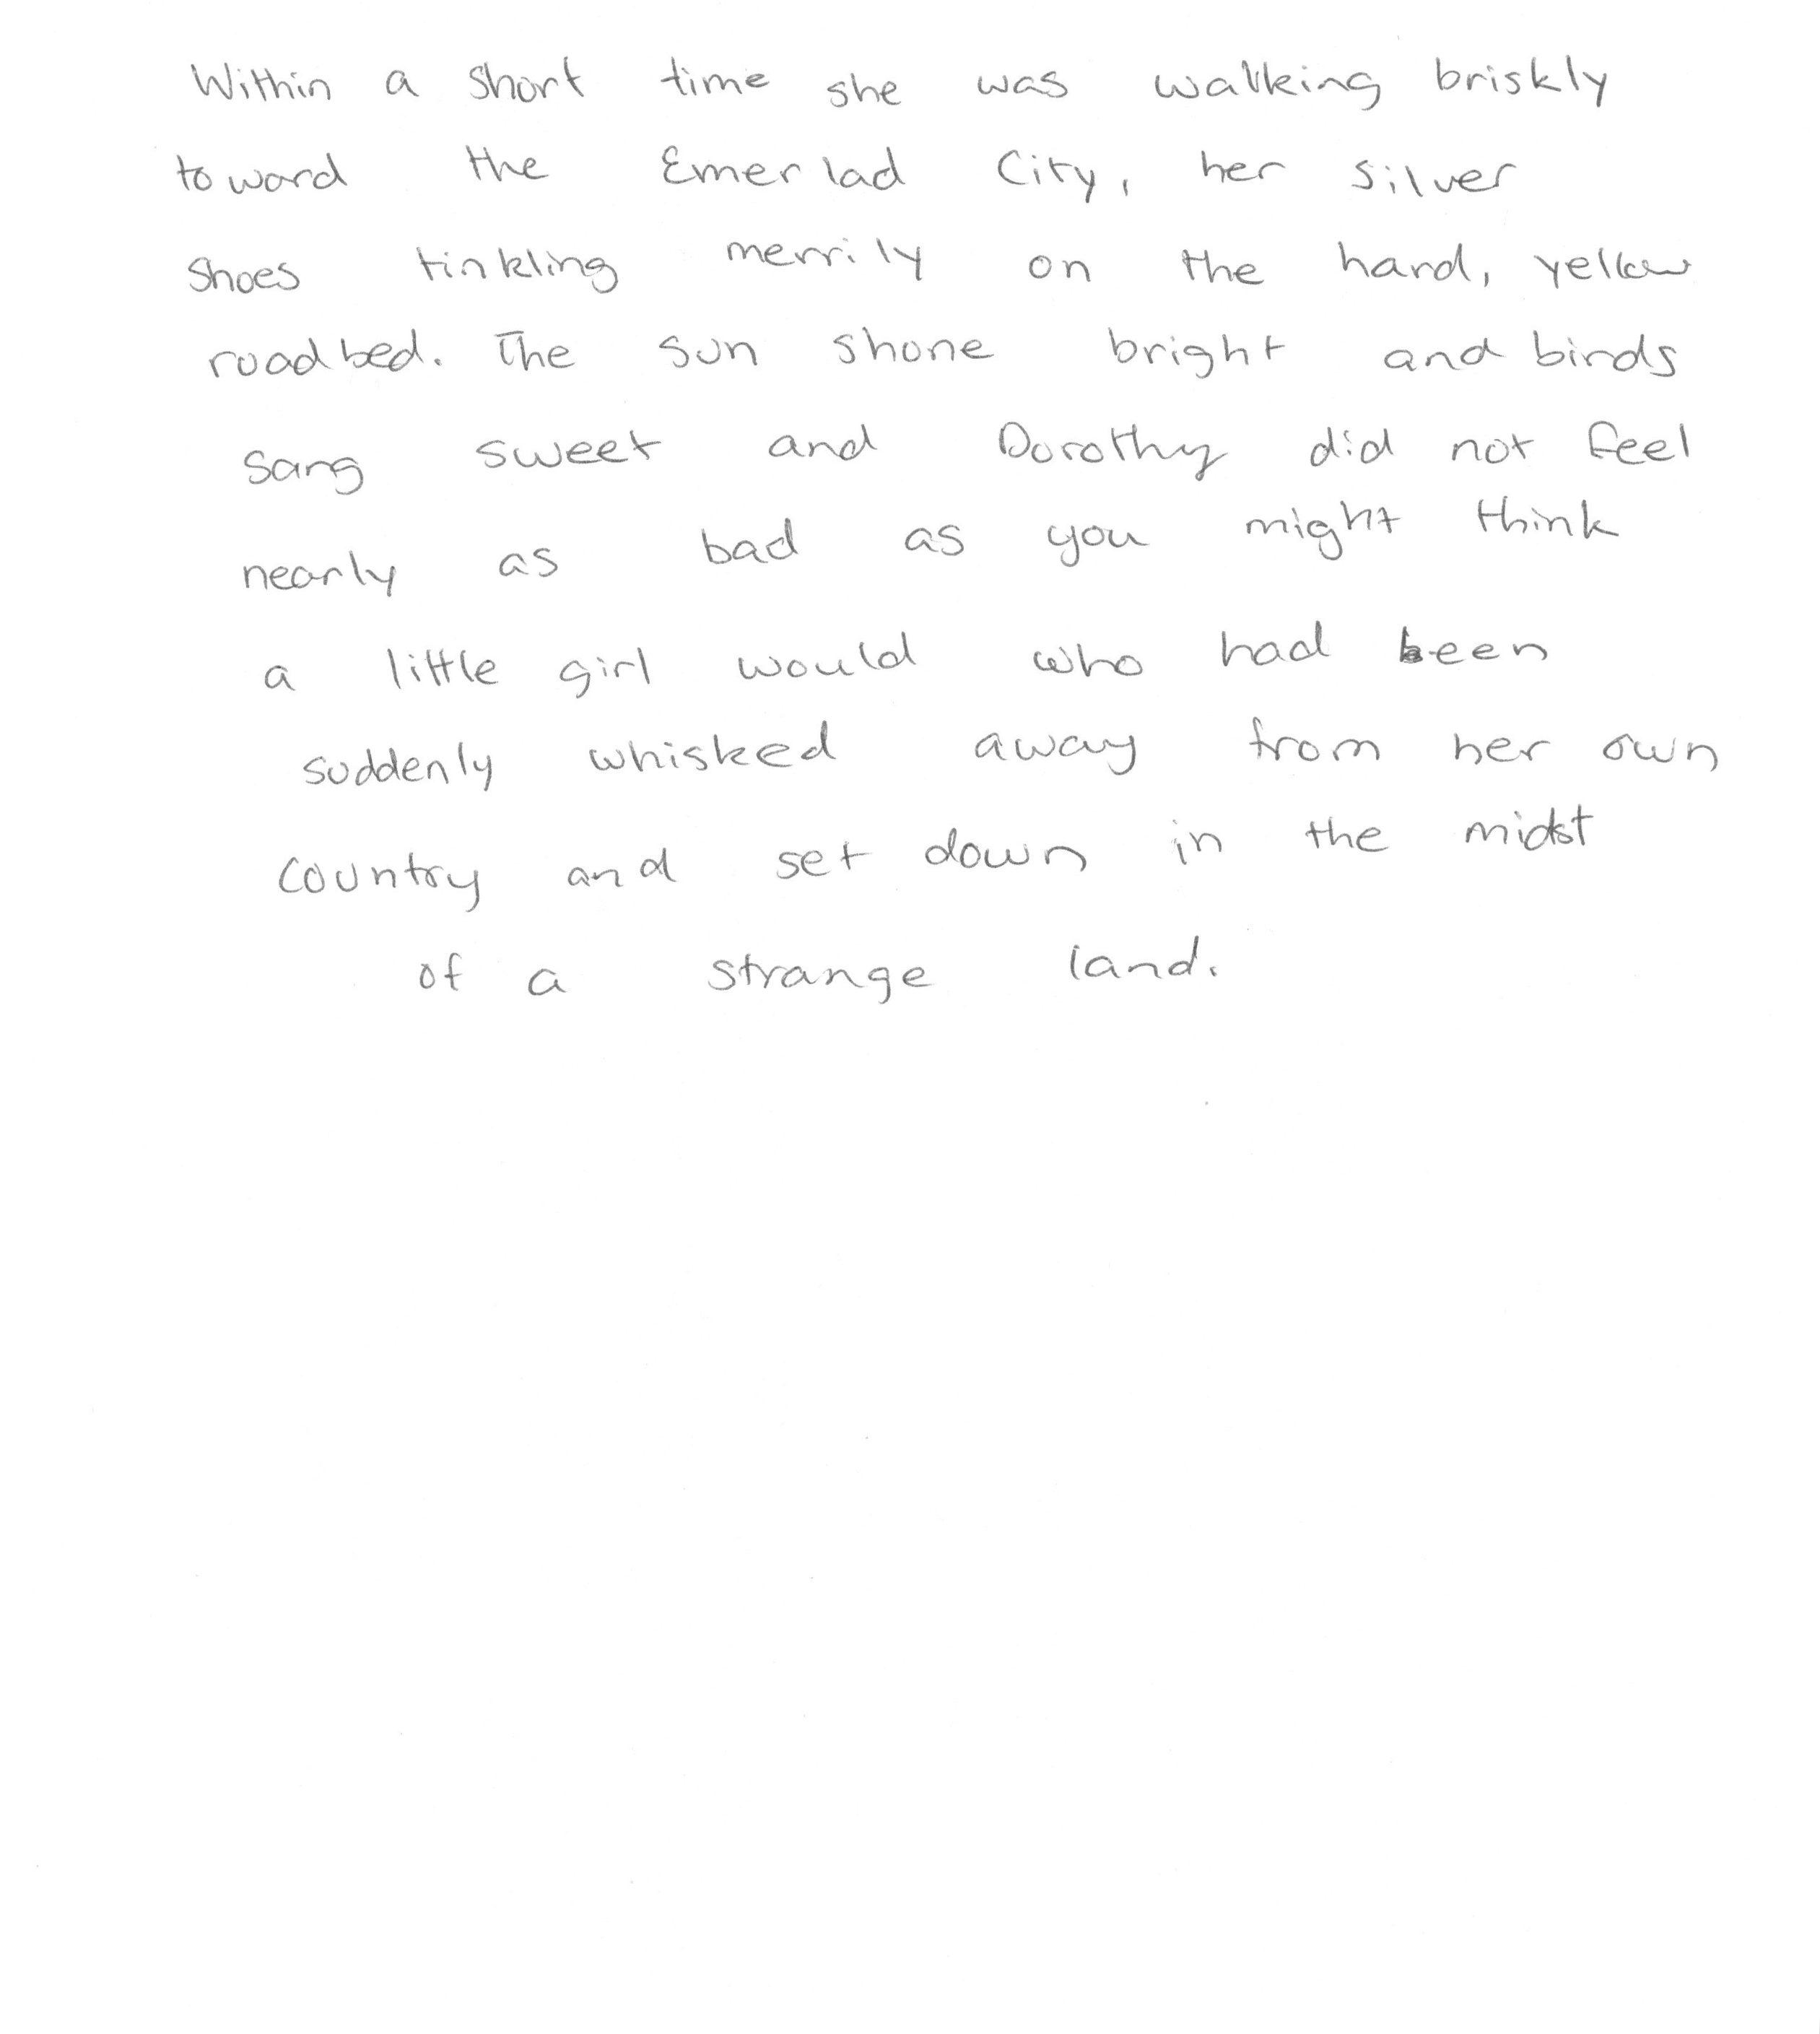 Within a short time she was walking briskly
toward the Emerlad City, her silver
shoes tinkling merrily on the hard, yellow
roadbed. The sun shone bright and birds
sang sweet and Dorothy did not feel
nearly as bad as you might think
a little girl would who had been
suddenly whisked away from her own
country and set down in the midst
of a strange land.